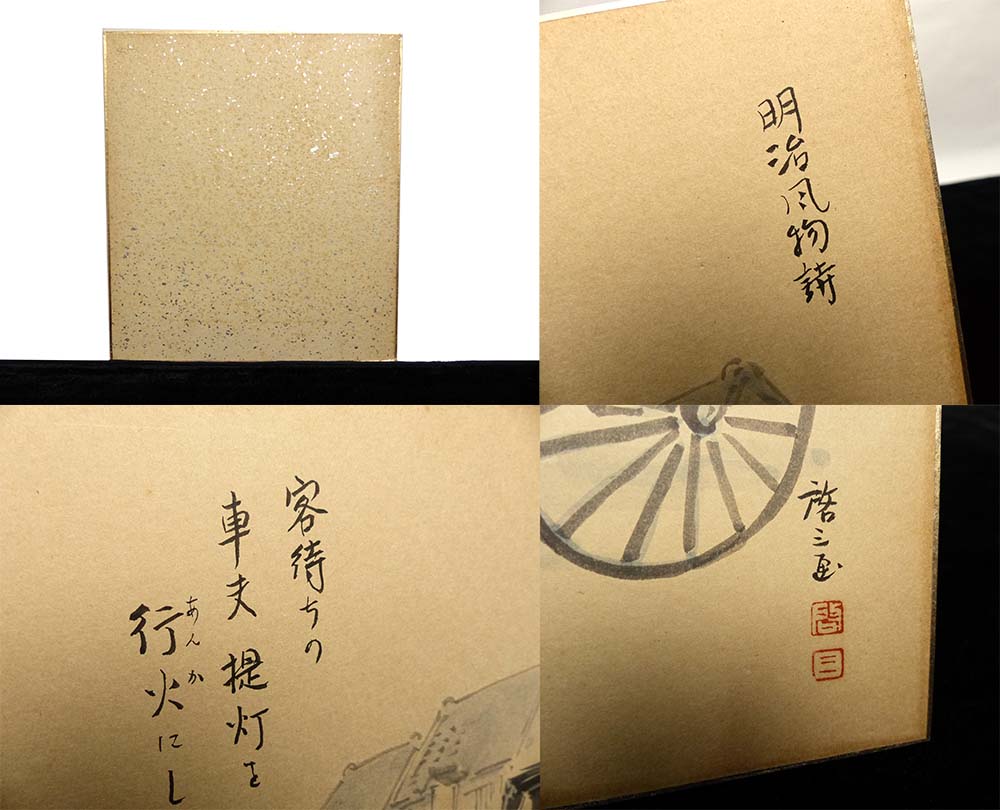 明治風物詩
客待ちの
車夫提灯を
行火にし
あんか
啓三画
啓
三